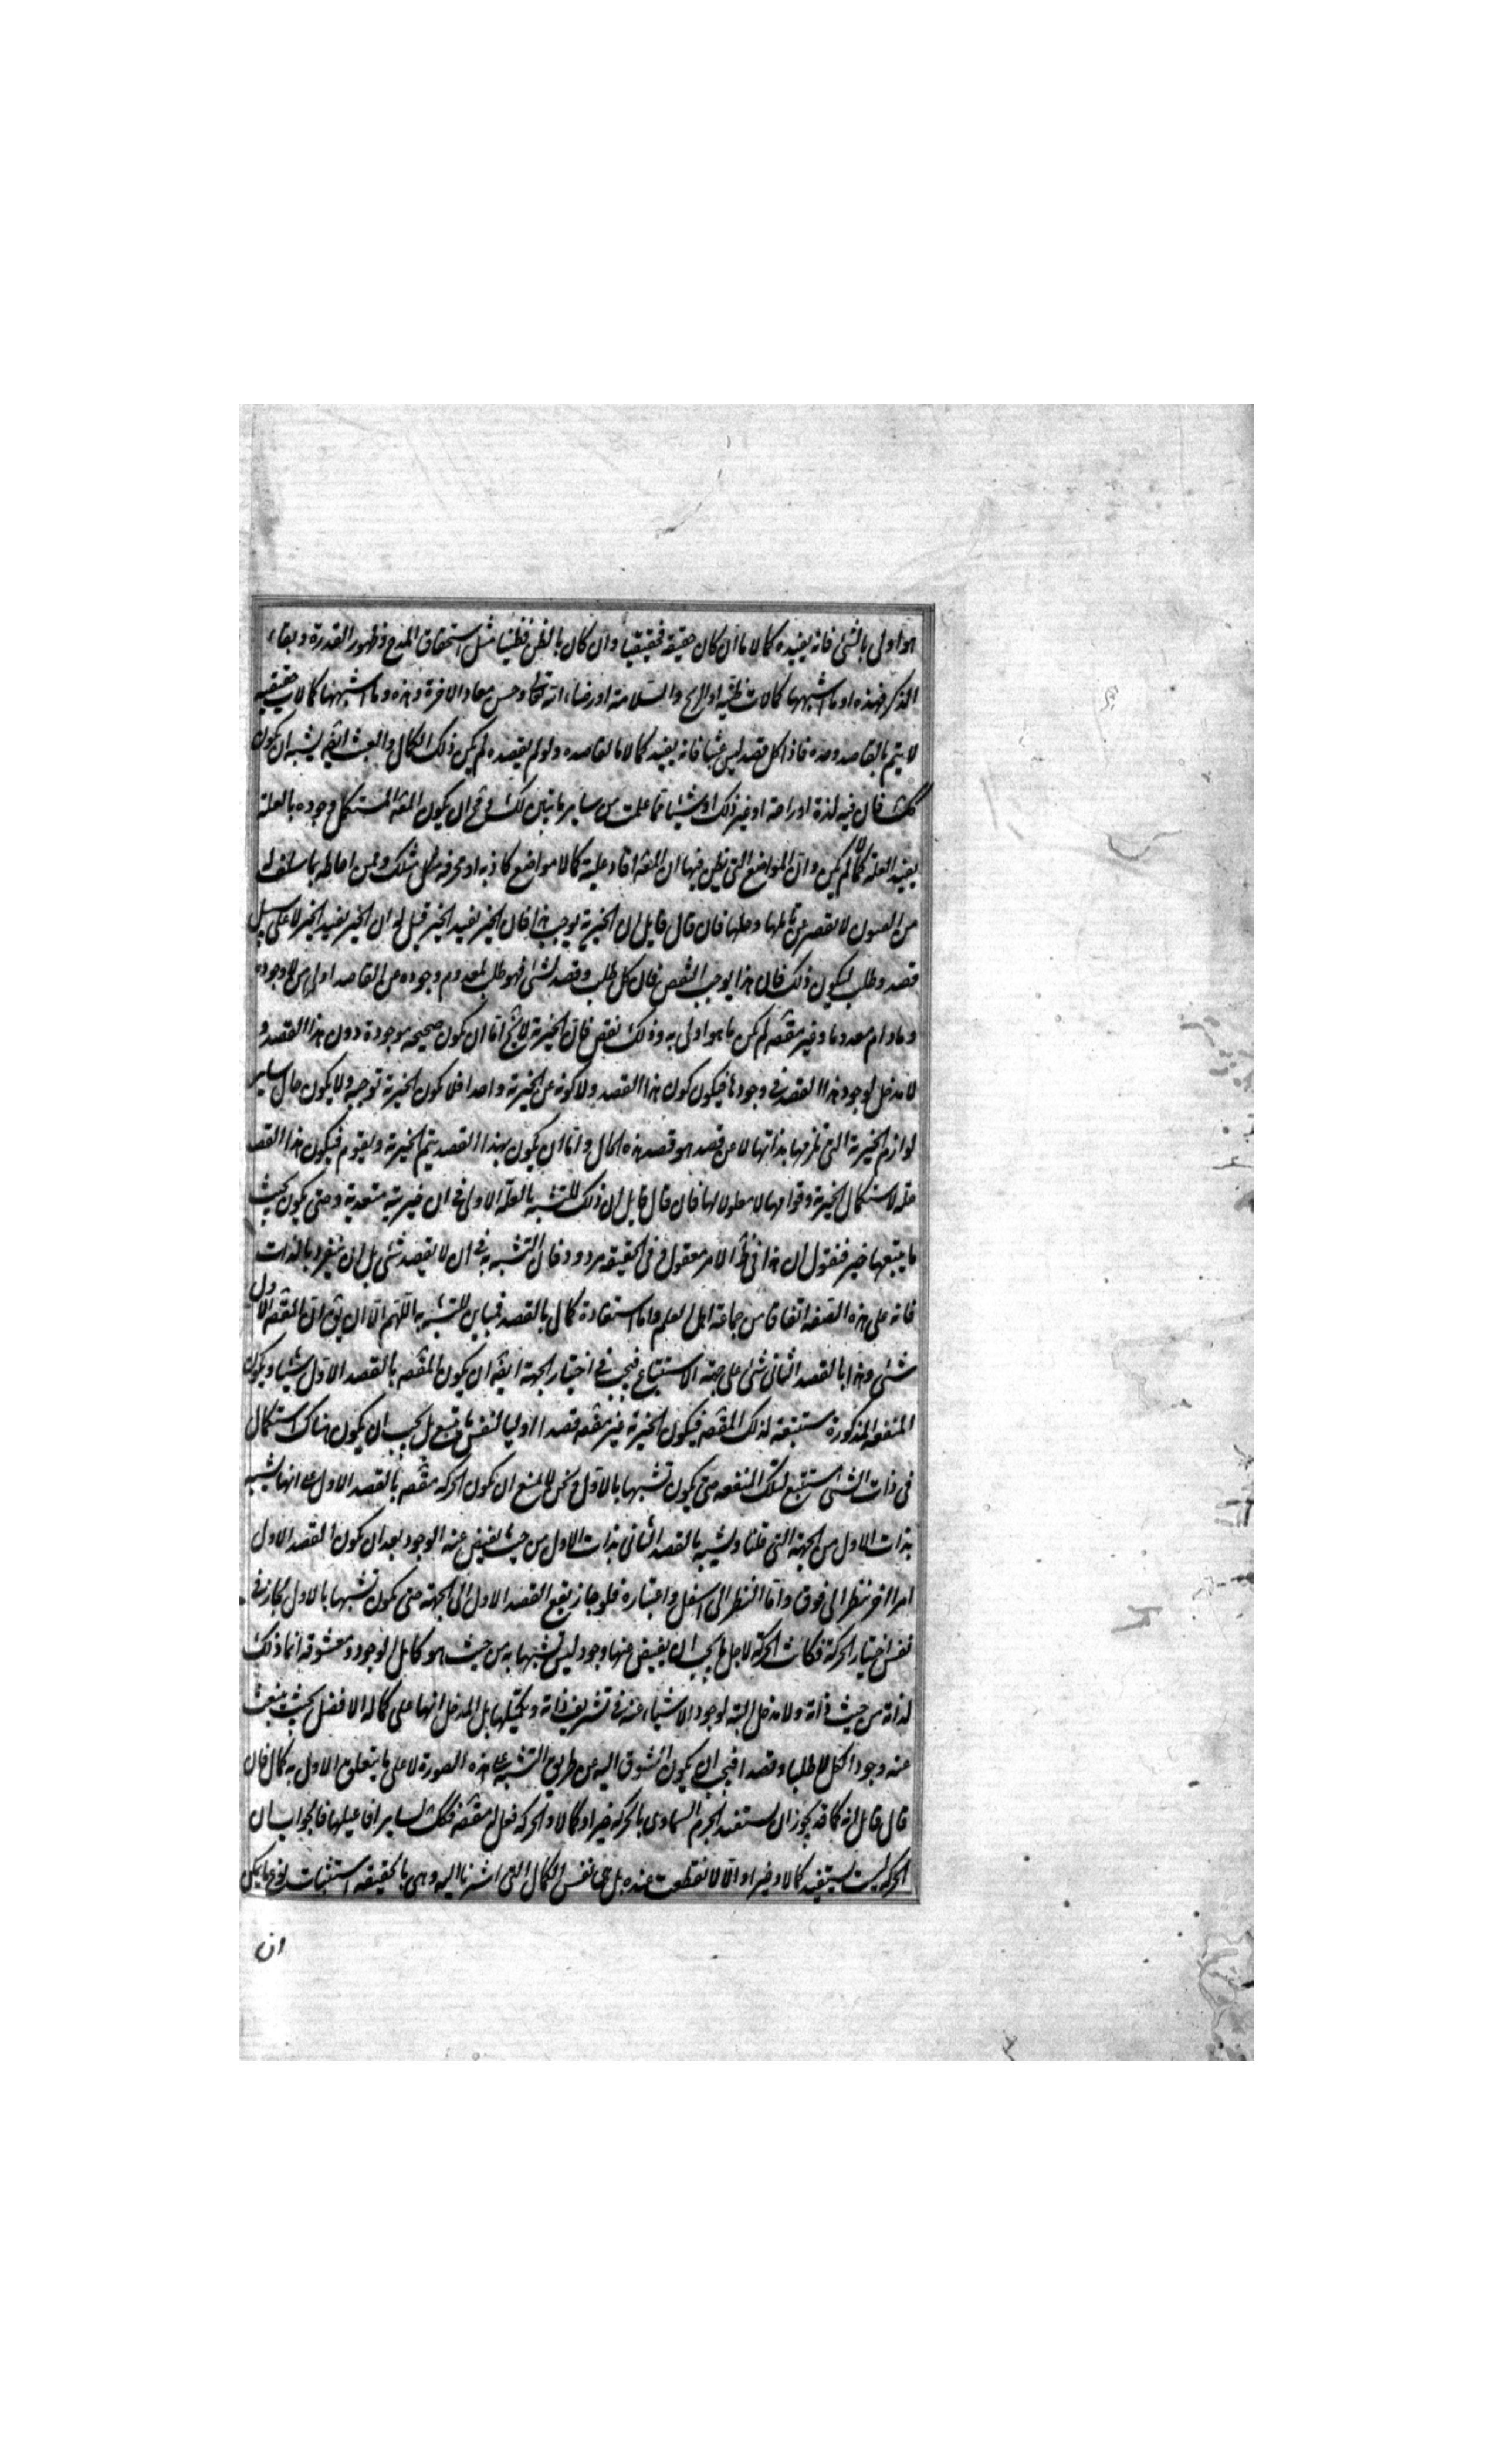 هو اولى بالشئ فانه يفيده كمالا ما ان كان حقيقة فحقيقيا وان كان بالظن فظنيا مثل استحقاق المدح وظهور القدرة وبقاء
الذكر فهذه او ما اشبهها كمالات ظنية او الربح والسلامة او رضاء الله تعا وحسن معاد الاخرة وهذه وما اشبهها كمالات حقيقيه
لا يتم بالقاصد وحده فاذا كل قصد ليس عبثا فانه يفيد كمالا ما لقاصده ولو لم يقصده لم يكن ذلك الكمال والعبث ايضا يشبه ان يكون
كك فان فيه لذة او راحة او غير ذلك او شيئا مما علمت من ساير ما تبين لك ومح ان يكون المعه المستكمل وجوده بالعلة
يفيد العلة كمالا لم يكن وان المواضع التي يظن فيها ان المعه افاد علية كمالا مواضع كاذبة او محرفه مثلك ومن احاط بما سلف له
من الفنون لا يقصر عن تاملها وحلها فان قال قايل ان الخيرية يوجب هذا فان الخير يفيد الخير قيل له ان الخير يفيد الخير لا على سبيل
قصد وطلب ليكون ذلك فان هذا يوجب النقص فان كل طلب وقصد لشئ فهو طلب لمعدوم وجوده عن القاصد اولى من لا وجوده
وما دام معدوما وغير مقصه لم يكن ما هو اولى به وذلك نقص فان الخيرية لا يخ اما ان يكون صحيحه موجودة دون هذا القصد و
لا مدخل لوجود هذا القصد في وجودها فيكون كون هذا القصد ولا كونه عن الخيرية واحدا فلا يكون الخيرية توجبه ولا يكون حال ساير
لوازم الخيرية التي تلزمها بذاتها لا عن قصد هو قصد هذه الحال واما ان يكون بهذا القصد يتم الخيرية ويقوم فيكون هذا القصد
علة لاستكمال الخيرية وقوامها لا معلولا لها فان قال قايل ان ذلك للتشبه بالعلة الاولى في ان خيريته متعدية وحتى يكون بحيث
ما يتبعها خير فنقول ان هذا في ظ الامر مقبول وفي الحقيقه مردود فان التشبه به في ان لا يقصد شئ بل ان ينفرد بالذات
فانه على هذه الصفه اتفاقا من جماعة اهل العلم واما استفادة كمال بالقصد فمباين للتشبه به اللهم الا ان يق ان المقصه الاول
شئ وهذا بالقصد الثاني شئ على جهة الاستتباع فيجب في اختيار الجهة ايضا ان يكون المقصه بالقصد الاول شيئا ويكون
المنفعه المذكورة مستتبعة لذلك المقصه فيكون الخيرية غير مقصه قصدا اوليا لنفس ما يتبع بل يجب ان يكون هناك استكمال
في ذات الشئ مستتبع لتلك المنفعه حتى يكون تشبها بالاول ونحن لا نمنع ان تكون الحركه مقصه بالقصد الاول على انها تشبه
بذات الاول من الجهة التي قلنا وتشبه بالقصد الثاني بذات الاول من حيث يفيض عنه الوجود بعد ان يكون القصد الاول
امرا اخر ننظر الى فوق واما النظر الى اسفل واعتباره فلو جاز يقع القصد الاول الى الجهة حتى يكون تشبها بالاول لجاز في
نفس اختيار الحركة فكانت الحركة لاجل ما يجب ان يفيض عنها وجود ليس تشبها به من حيث هو كامل الوجود ومعشوقه انما ذلك
لذاته من حيث ذاته ولا مدخل البته لوجود الاشياء عنه في تشريف ذاته وتكميلها بل المدخل انها على كماله الافضل بحيث ينبعث
عنه وجود الكل لا طلبا وقصدا فيجب ان يكون الشوق اليه عن طريق التشبه على هذه الصورة لا على ما يتعلق للاول به كمال فان
قال قايل انه كما قد يجوز ان يستفيد الجرم السماوى بالحركه خيرا وكمالا والحركه فعل له مقصه فكك لساير افاعيلها فالجواب ان
الحركه ليست يستفيد كمالا وخيرا والا لانقطعت عنده بل هى نفس الكمال التى اشرنا اليه وهى بالحقيقه استثبات نوع ما يمكن
ان